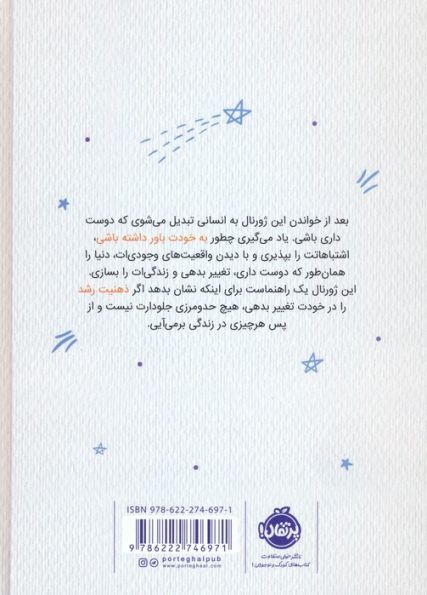 بعد از خواندن این ژورنال به انسانی تبدیل می‌شوی که دوست
داری باشی. یاد می‌گیری چطور به خودت باور داشته باشی،
اشتباهاتت را بپذیری و با دیدن واقعیت‌های وجودی‌ات، دنیا را
همان‌طور که دوست داری، تغییر بدهی و زندگی‌ات را بسازی.
این ژورنال یک راهنماست برای اینکه نشان بدهد اگر ذهنیت رشد
را در خودت تغییر بدهی، هیچ حدومرزی جلودارت نیست و از
پس هرچیزی در زندگی برمی‌آیی.
ISBN 978-622-274-697-1
9 786222 746971
porteghalpub
www.porteghaal.com
پرتقال!
ناشر خوان متفاوت
کتاب‌های کودک و نوجوان!